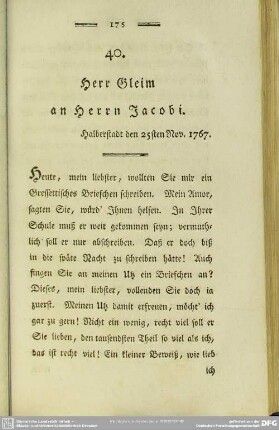 175
40.
Herr Gleim
an Herrn Jacobi.
Halberstadt den 25sten Nov. 1767.
Heute, mein liebster, wollten Sie mir ein
Gressettisches Briefchen schreiben. Mein Amor,
sagten Sie, würd' Ihnen helfen. In Ihrer
Schule muß er weit gekommen seyn; vermuth-
lich soll er nur abschreiben. Daß er doch biß
in die späte Nacht zu schreiben hätte! Auch
fingen Sie an meinen Uz ein Briefchen an?
Dieses, mein liebster, vollenden Sie doch ja
zuerst. Meinen Uz damit erfreuen, möcht' ich
gar zu gern! Nicht ein wenig, recht viel soll er
Sie lieben, den tausendsten Theil so viel als ich,
das ist recht viel! Ein kleiner Beweiß, wie lieb
ich